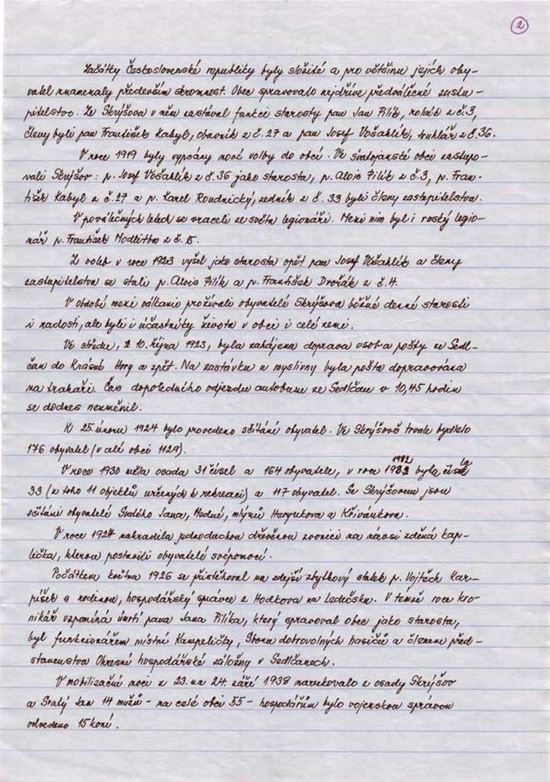 2
Začátky Československé republiky byly složité a pro většinu jejich oby-
vatel znamenaly především skromnost. Obec spravovalo nejdříve předválečné zastu-
pitelstvo. Ze Skrýšova v něm zastával funkci starosty pan Jan Filík, rolník z č. 3,
členy byli pan František Kabyl, obuvník z č. 27 a pan Josef Vošahlík, truhlář z č. 36.
V roce 1919 byly vypsány nové volby do obcí. Ve Svatojanské obci zastupo-
vali Skrýšov: p. Josef Vošahlík z č. 36 jako starosta, p. Alois Filík z č. 3, p. Fran-
tišek Kabyl z č. 27 a p. Karel Roudnický, zedník z č. 33 byli členy zastupitelstva.
V poválečných letech se vraceli ze světa legionáři. Mezi nim byl i ruský legio-
nář p. František Modlitba z č. 15.
Z voleb v roce 1923 vyšel jako starosta opět pan Josef Vošahlík a členy
zastupitelstva se stali p. Alois Filík a p. František Dvořák z č. 4.
V období mezi válkami prožívali obyvatelé Skrýšova běžné denní starosti
i radosti, ale byli i účastníky života v obci i celé zemi.
Ve středu, 10. října 1923, byla zahájena doprava osob a pošty ze Sedl-
čan do Krásné Hory a zpět. Na zastávku u myslivny byla pošta dopravována
na trakaři. Čas dopoledního odjezdu autobusu ze Sedlčan v 10,45 hodin
se dodnes nezměnil.
K 25. únoru 1924 bylo provedeno sčítání obyvatel. Ve Skrýšově trvale bydlelo
176 obyvatel (v celé obci 1129).
V roce 1930 měla osada 31 čísel a 164 obyvatele, v roce 1982 byla čísla
33 (z toho 11 objektů určených k rekreaci) a 117 obyvatel. Se Skrýšovem jsou
sčítáni obyvatelé Svatého Jana, Hodné, mlýnů Heryukova a Křivánkova.
V roce 1924 nahradila jednoduchou dřevěnou zvonici na návsi zděná kap-
lička, kterou postavili obyvatelé svépomocí.
Počátkem května 1926 se přistěhoval na zdejší zbytkový statek p. Vojtěch Kar-
píšek s rodinou, hospodářský správce z Hodkova na Ledečsku. V témže roce kro-
nikář vzpomíná úmrtí pana Jana Filíka, který spravoval obec jako starosta,
byl funkcionářem místní Kampeličky, Sboru dobrovolných hasičů a členem před-
stavenstva Okresní hospodářské záložny v Sedlčanech.
V mobilizační noci z 23. na 24. září 1938 narukovalo z osady Skrýšov
a Svatý Jan 14 mužů - na celé obci 55 - hospodářům bylo vojenskou správou
odvedeno 15 koní.